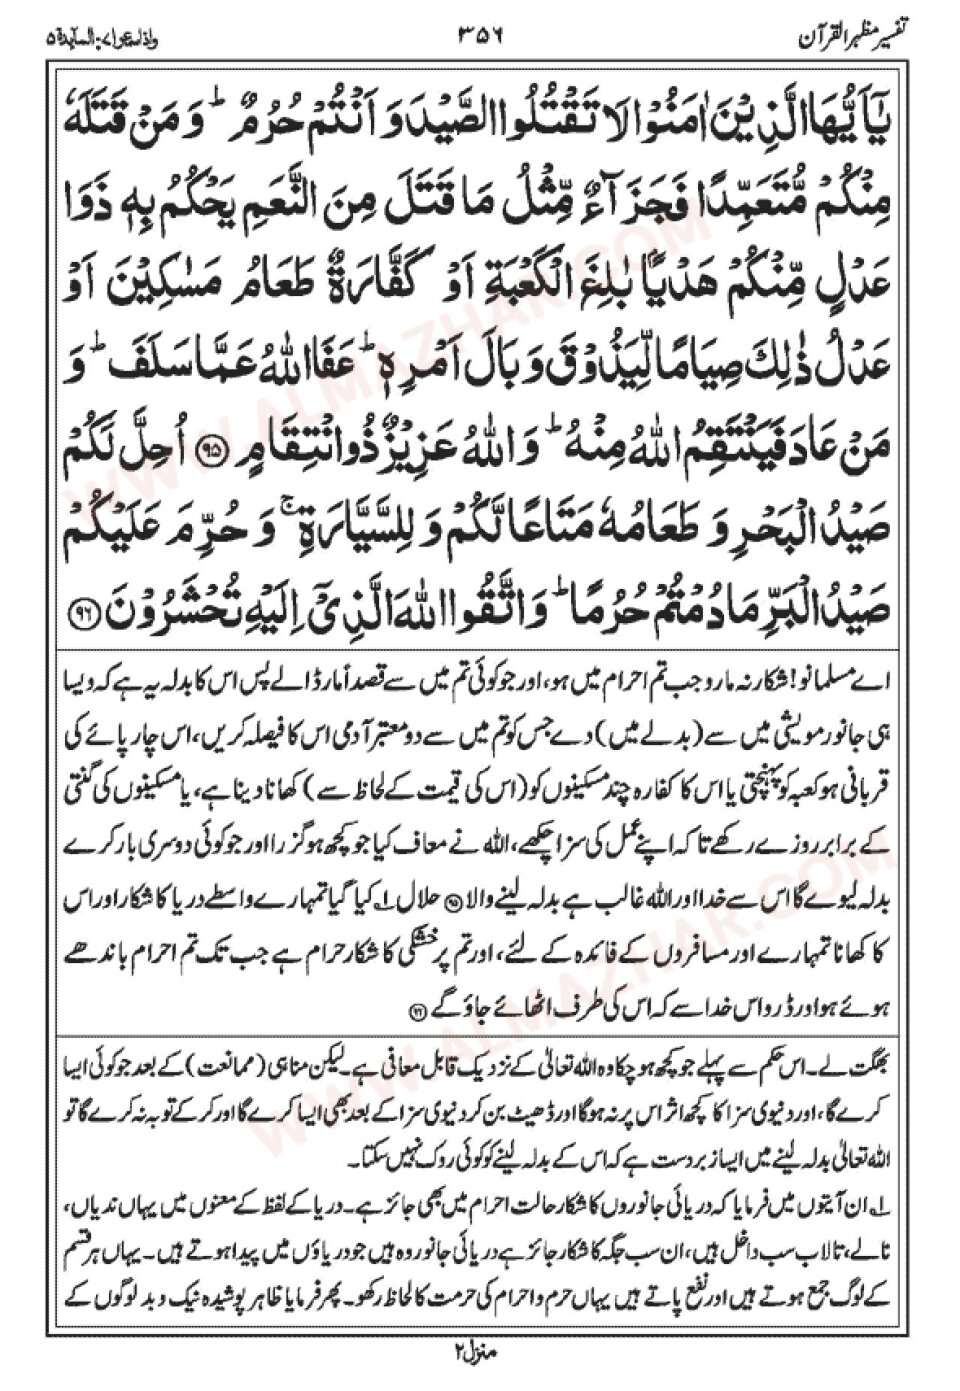 تفسیر مظہر القرآن
۳۵۶
واذاسمعوا۷: المآیدۃ۵
يٰۤاَيُّهَا الَّذِيْنَ اٰمَنُوْا لَا تَقْتُلُوا الصَّيْدَ وَ اَنْتُمْ حُرُمٌ ؕ وَ مَنْ قَتَلَهٗ
مِنْكُمْ مُّتَعَمِّدًا فَجَزَآءٌ مِّثْلُ مَا قَتَلَ مِنَ النَّعَمِ يَحْكُمُ بِهٖ ذَوَا
عَدْلٍ مِّنْكُمْ هَدْيًۢا بٰلِغَ الْكَعْبَةِ اَوْ كَفَّارَةٌ طَعَامُ مَسٰكِيْنَ اَوْ
عَدْلُ ذٰلِكَ صِيَامًا لِّيَذُوْقَ وَ بَالَ اَمْرِهٖ ؕ عَفَا اللّٰهُ عَمَّا سَلَفَ ؕ وَ
مَنْ عَادَ فَيَنْتَقِمُ اللّٰهُ مِنْهُ ؕ وَ اللّٰهُ عَزِيْزٌ ذُو انْتِقَامٍ ﴿۹۵﴾ اُحِلَّ لَكُمْ
صَيْدُ الْبَحْرِ وَ طَعَامُهٗ مَتَاعًا لَّكُمْ وَ لِلسَّيَّارَةِ ۚ وَ حُرِّمَ عَلَيْكُمْ
صَيْدُ الْبَرِّ مَا دُمْتُمْ حُرُمًا ؕ وَ اتَّقُوا اللّٰهَ الَّذِيْۤ اِلَيْهِ تُحْشَرُوْنَ ﴿۹۶﴾
اے مسلمانو! شکار نہ مارو جب تم احرام میں ہو، اور جو کوئی تم میں سے قصداً مار ڈالے پس اس کا بدلہ یہ ہے کہ ویسا
ہی جانور مویشی میں سے (بدلے میں) دے جس کو تم میں سے دو معتبر آدمی اس کا فیصلہ کریں، اس چار پائے کی
قربانی ہو کعبہ کو پہنچتی یا اس کا کفارہ چند مسکینوں کو (اس کی قیمت کے لحاظ سے) کھانا دینا ہے، یا مسکینوں کی گنتی
کے برابر روزے رکھے تاکہ اپنے عمل کی سزا چکھے، اللہ نے معاف کیا جو کچھ ہو گزرا اور جو کوئی دوسری بار کرے
بدلہ لیوے گا اس سے خدا اور اللہ غالب ہے بدلہ لینے والا ﴿۹۵﴾ حلال ۱؎ کیا گیا تمہارے واسطے دریا کا شکار اور اس
کا کھانا تمہارے اور مسافروں کے فائدہ کے لئے، اور تم پر خشکی کا شکار حرام ہے جب تک تم احرام باندھے
ہوئے ہو اور ڈرو اس خدا سے کہ اس کی طرف اٹھائے جاؤ گے ﴿۹۶﴾
بھگت لے۔ اس حکم سے پہلے جو کچھ ہو چکا وہ اللہ تعالیٰ کے نزدیک قابل معافی ہے۔ لیکن مناہی (ممانعت) کے بعد جو کوئی ایسا
کرے گا، اور دنیوی سزا کا کچھ اثر اس پر نہ ہوگا اور ڈھیٹ بن کر دنیوی سزا کے بعد بھی ایسا کرے گا اور کر کے توبہ نہ کرے گا تو
اللہ تعالیٰ بدلہ لینے میں ایسا زبردست ہے کہ اس کے بدلہ لینے کو کوئی روک نہیں سکتا۔
۱؎ ان آیتوں میں فرمایا کہ دریائی جانوروں کا شکار حالت احرام میں بھی جائز ہے۔ دریا کے لفظ کے معنوں میں یہاں ندیاں،
نالے، تالاب سب داخل ہیں، ان سب جگہ کا شکار جائز ہے دریائی جانور وہ ہیں جو دریاؤں میں پیدا ہوتے ہیں۔ یہاں ہر قسم
کے لوگ جمع ہوتے ہیں اور نفع پاتے ہیں یہاں حرم و احرام کی حرمت کا لحاظ رکھو۔ پھر فرمایا ظاہر پوشیدہ نیک و بد لوگوں کے
منزل ۲
WWW.ALMAZHAR.COM
WWW.ALMAZHAR.COM